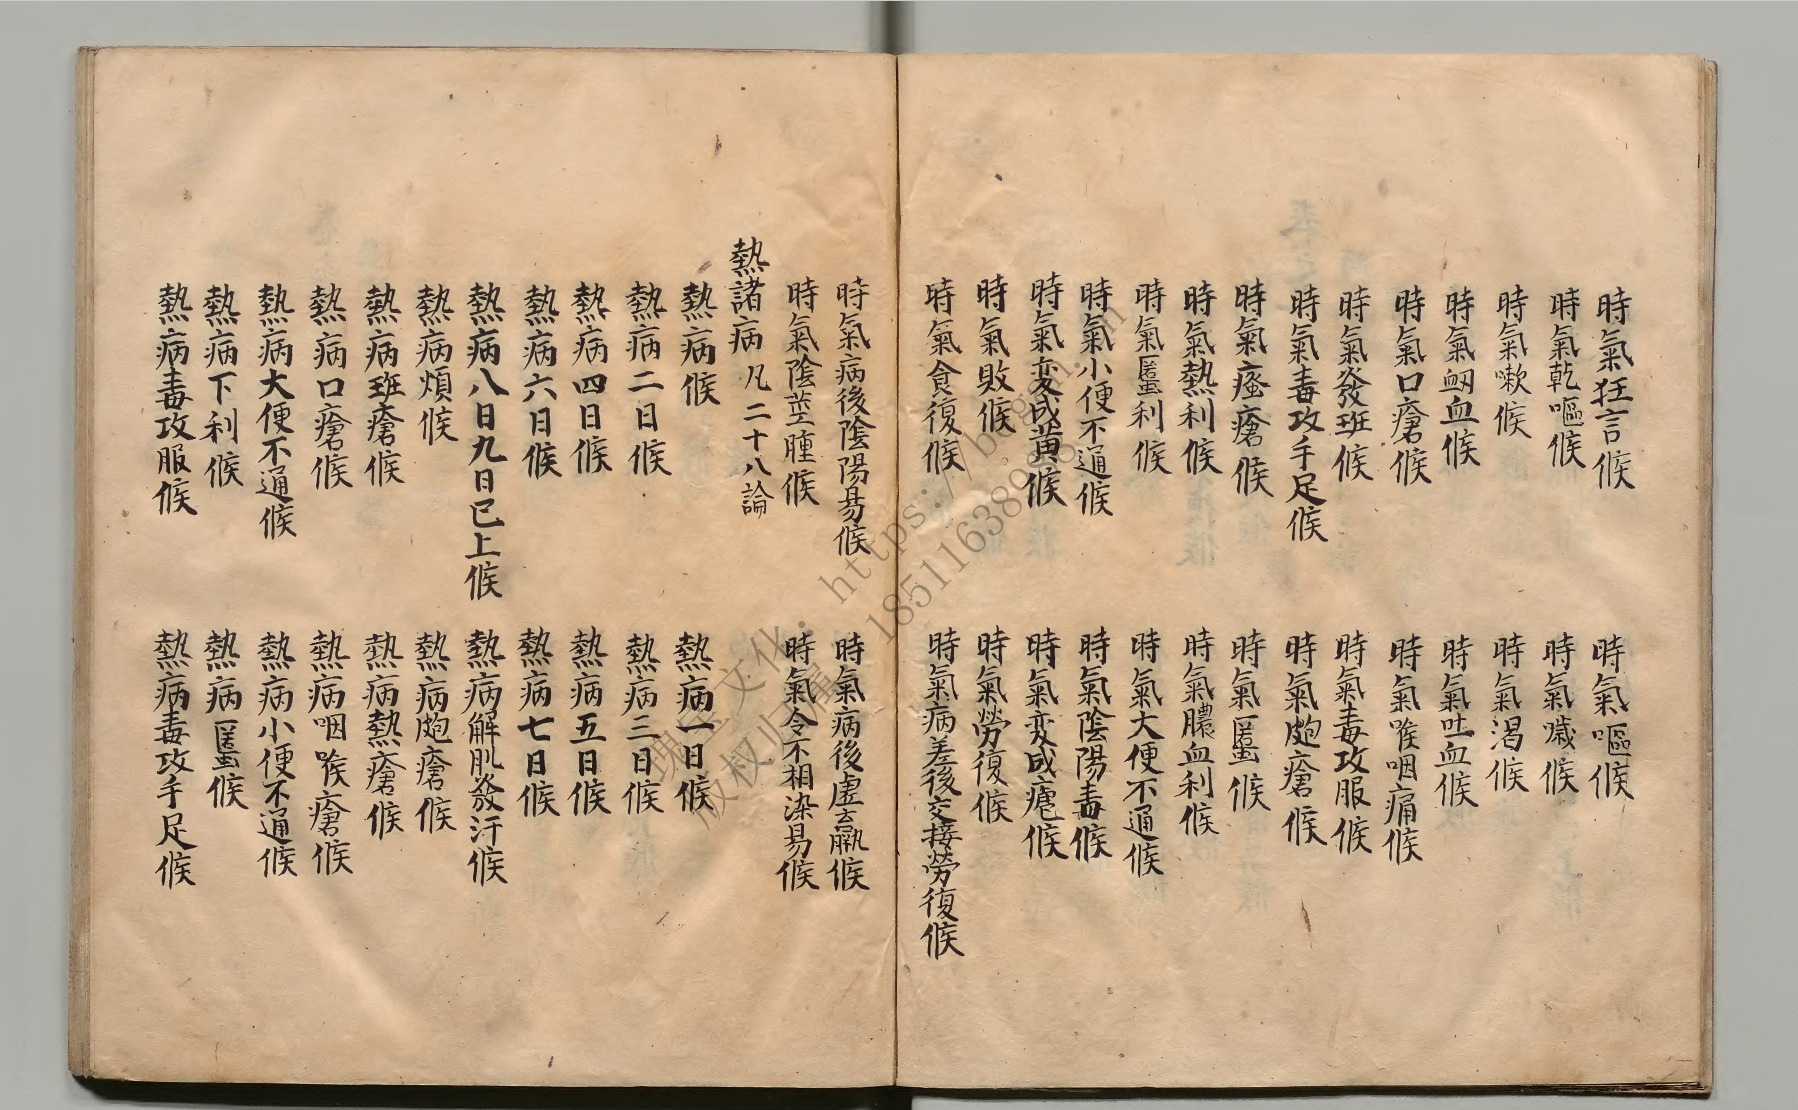 時氣狂言候 時氣嘔候
時氣乾嘔候 時氣噦候
時氣嗽候 時氣渴候
時氣衂血候 時氣吐血候
時氣口瘡候 時氣喉咽痛候
時氣發班候 時氣毒攻服候
時氣毒攻手足候 時氣皰瘡候
時氣瘙瘡候 時氣䘌候
時氣熱利候 時氣膿血利候
時氣䘌利候 時氣大便不通候
時氣小便不通候 時氣陰陽毒候
時氣変成黄候 時氣変成瘧候
時氣敗候 時氣勞復候
時氣食復候 時氣病差後交接勞復候
時氣病後陰陽易候 時氣病後虚羸候
時氣陰莖腫候 時氣令不相染易候
熱諸病 凡二十八論
熱病候 熱病一日候
熱病二日候 熱病三日候
熱病四日候 熱病五日候
熱病六日候 熱病七日候
熱病八日九日已上候 熱病解肌發汗候
熱病煩候 熱病皰瘡候
熱病班瘡候 熱病熱瘡候
熱病口瘡候 熱病咽喉瘡候
熱病大便不通候 熱病小便不通候
熱病下利候 熱病䘌候
熱病毒攻服候 熱病毒攻手足候
瑰宝文化: https://bagan
版权归属 18511638988